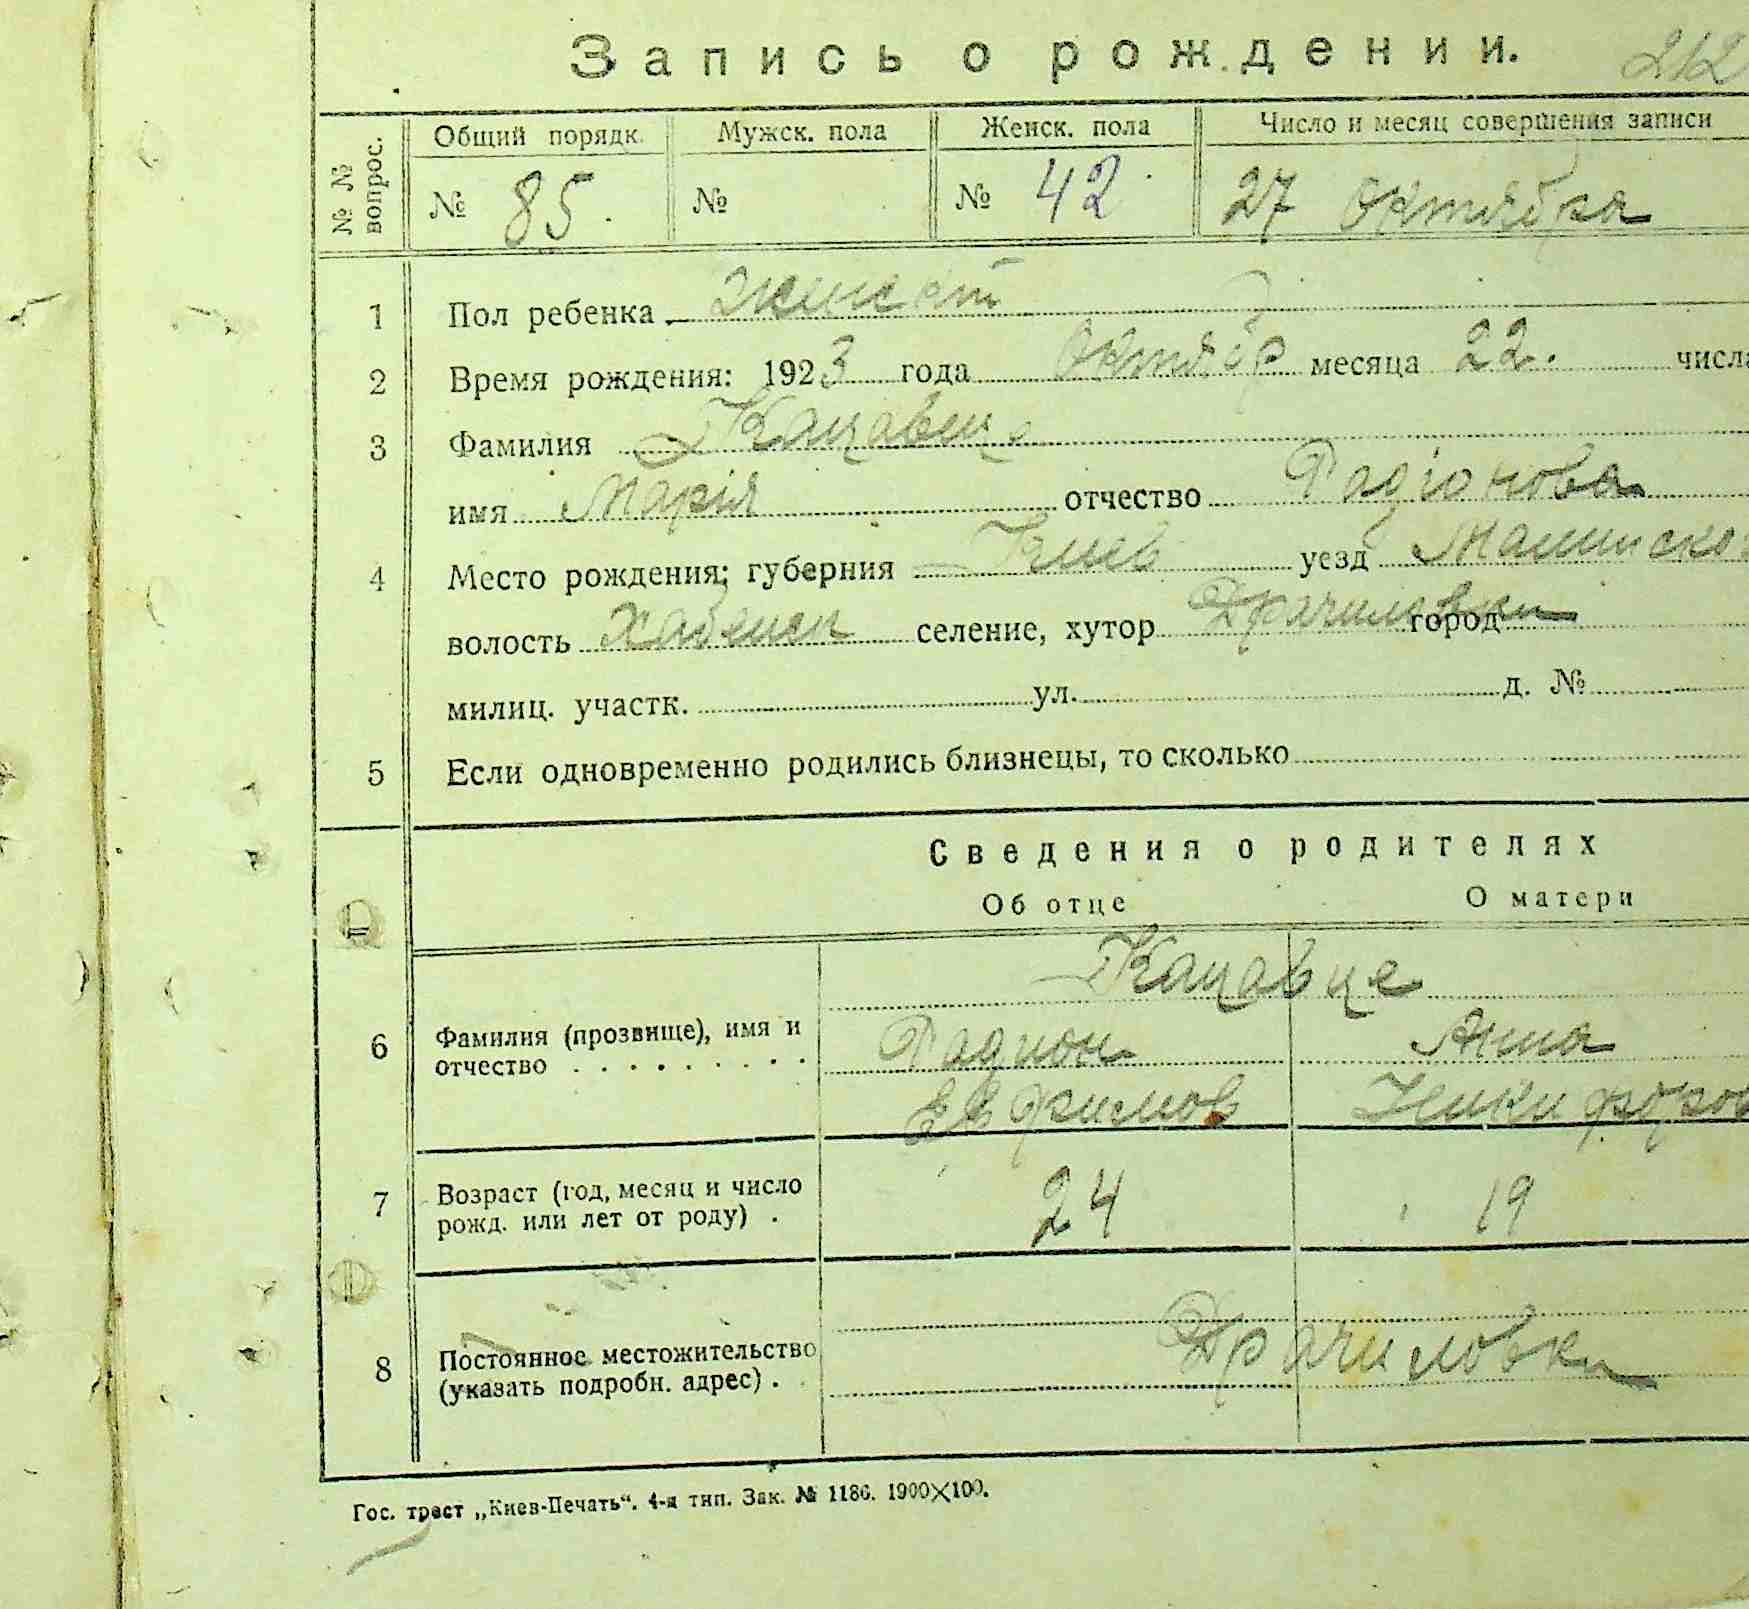 Запись о рождении. 212
№ № вопрос.
Общий порядк. Мужск. пола Женск. пола Число и месяц совершения записи
№ 85. № № 42 27 Октября
1 Пол ребенка Женск
2 Время рождения: 1923 года Октябр месяца 22. числа
3 Фамилия
имя Марія отчество Радіонова
4 Место рождения; губерния Киев уезд Малинско
волость Хабенск селение, хутор Драчиловки город
милиц. участк. ул. д. №
5 Если одновременно родились близнецы, то сколько
Сведения о родителях
Об отце О матери
Кацавце
6 Фамилия (прозвище), имя и отчество . . . . . . . . . Радион Анна
Ефимов Никифоров
7 Возраст (год, месяц и число рожд. или лет от роду) . 24 19
8 Постоянное местожительство (указать подробн. адрес) . Драчиловки
Гос. трест „Киев-Печать“. 4-я тип. Зак. № 1186. 1900×100.